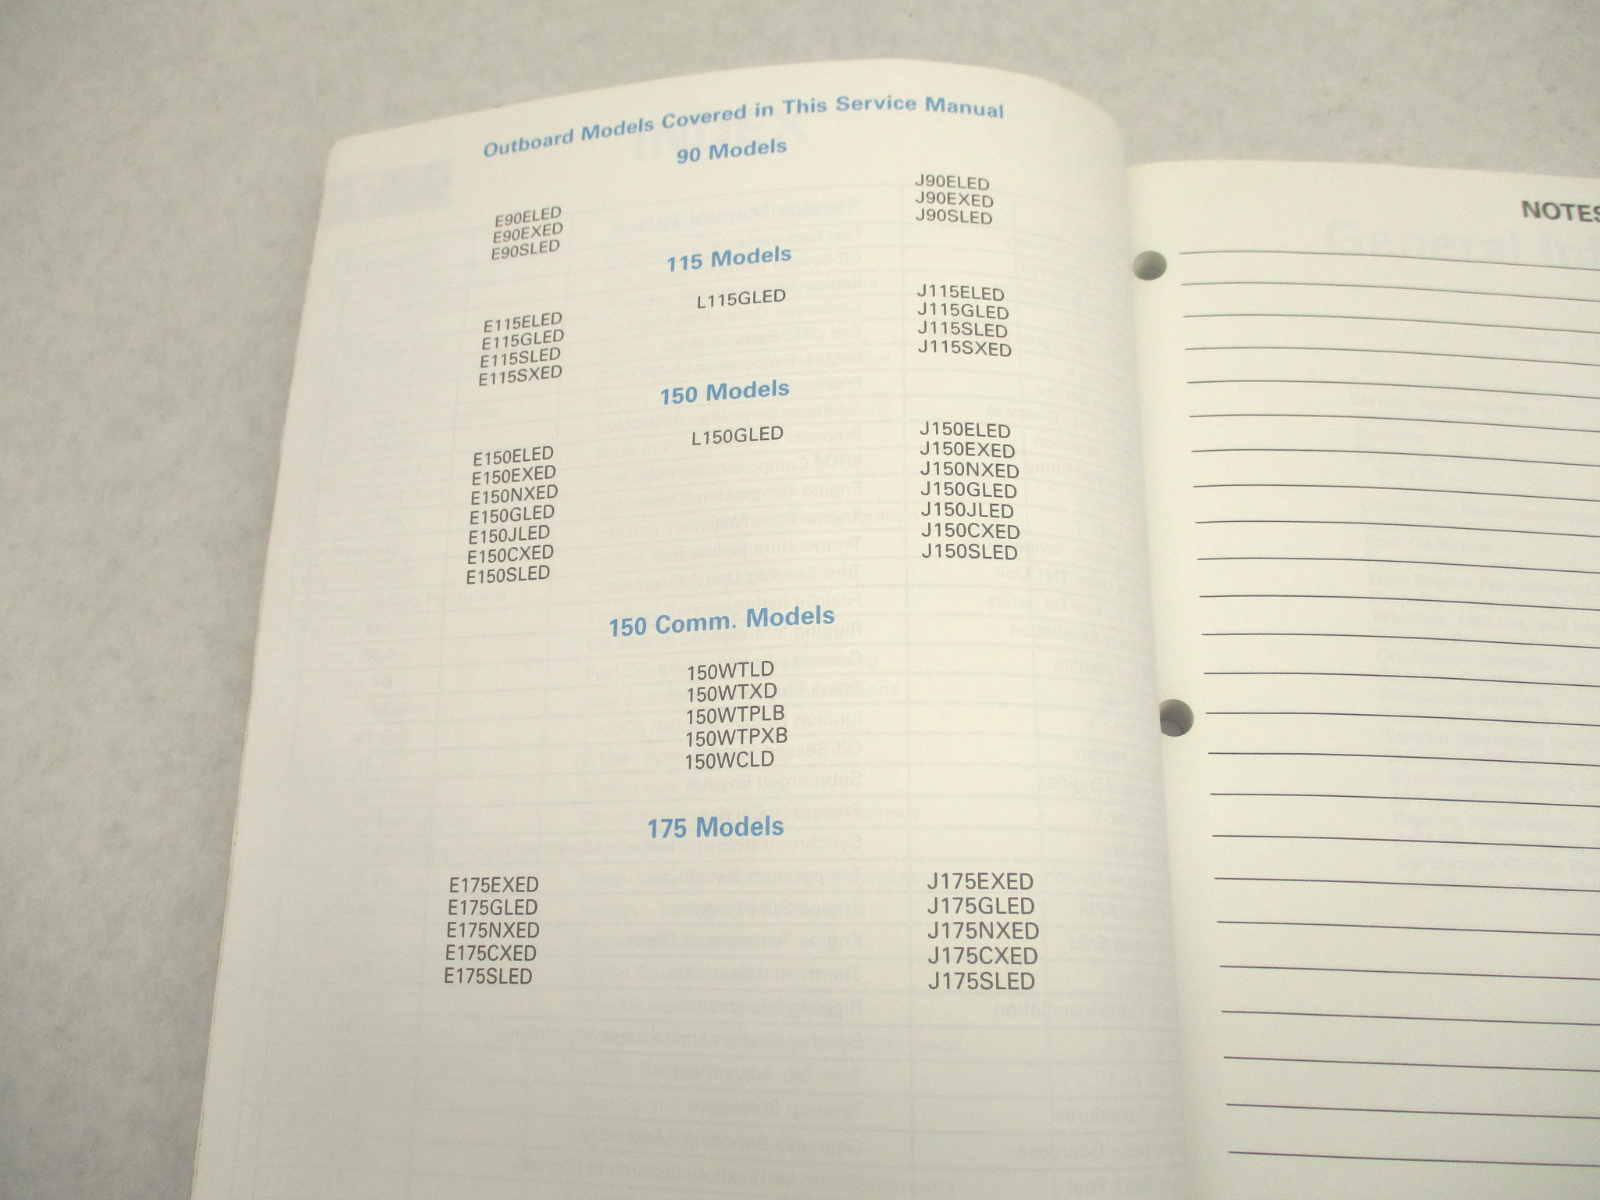 Outboard Models Covered in This Service Manual
90 Models
E90ELED
E90EXED
E90SLED
J90ELED
J90EXED
J90SLED
115 Models
E115ELED
E115GLED
E115SLED
E115SXED
L115GLED
J115ELED
J115GLED
J115SLED
J115SXED
150 Models
E150ELED
E150EXED
E150NXED
E150GLED
E150JLED
E150CXED
E150SLED
L150GLED
J150ELED
J150EXED
J150NXED
J150GLED
J150JLED
J150CXED
J150SLED
150 Comm. Models
150WTLD
150WTXD
150WTPLB
150WTPXB
150WCLD
175 Models
E175EXED
E175GLED
E175NXED
E175CXED
E175SLED
J175EXED
J175GLED
J175NXED
J175CXED
J175SLED
NOTES